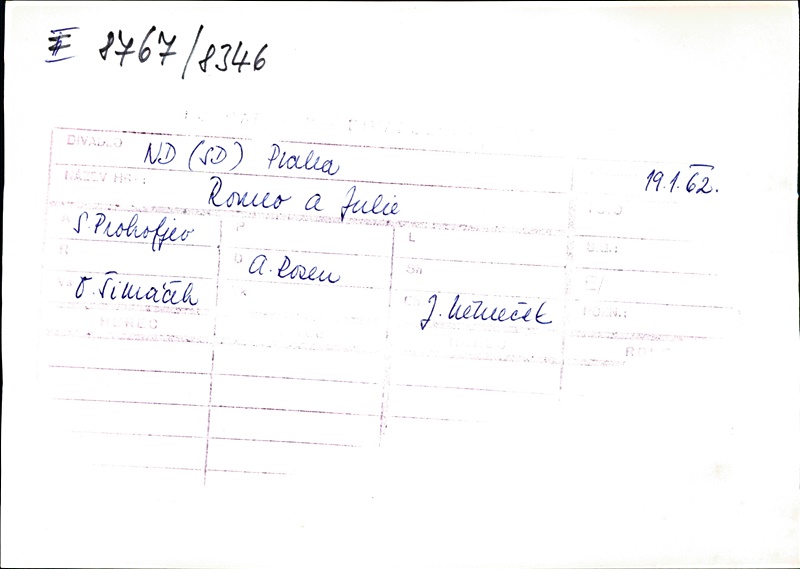 I 8767/8346
DIVADLO ND (SD) Praha
19.1.62.
NÁZEV HRY Romeo a Julie
S. Prokofjev
A. Rosen
O. Šimáček
J. Němeček